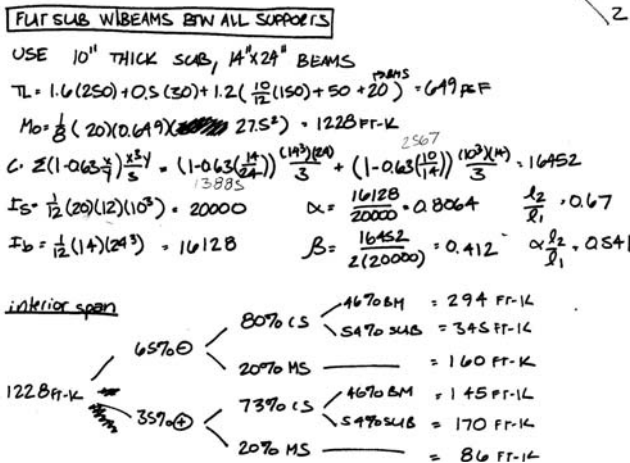 2
FLAT SLAB W/BEAMS BTW ALL SUPPORTS
USE 10" THICK SLAB, 14"x24" BEAMS
TL = 1.6(250) + 0.5(30) + 1.2(10/12(150) + 50 + 20) = 649 PSF
BEAMS
Mo = 1/8(20)(0.649)(27.5²) = 1228 FT-K
2567
C = Σ(1-0.63 x/y) x³y/3 = (1-0.63(14/24)) (14³)(24)/3 + (1-0.63(10/14)) (10³)(14)/3 = 16452
13885
Is = 1/12(20)(12)(10³) = 20000 α = 16128/20000 = 0.8064 l2/l1 = 0.67
Ib = 1/12(14)(24³) = 16128 β = 16452/2(20000) = 0.412 α l2/l1 = 0.541
interior span
46% BM = 294 FT-K
80% CS
65% ⊖ 54% SLAB = 345 FT-K
20% MS = 160 FT-K
1228 FT-K
46% BM = 145 FT-K
35% ⊕ 73% CS
54% SLAB = 170 FT-K
20% MS = 86 FT-K